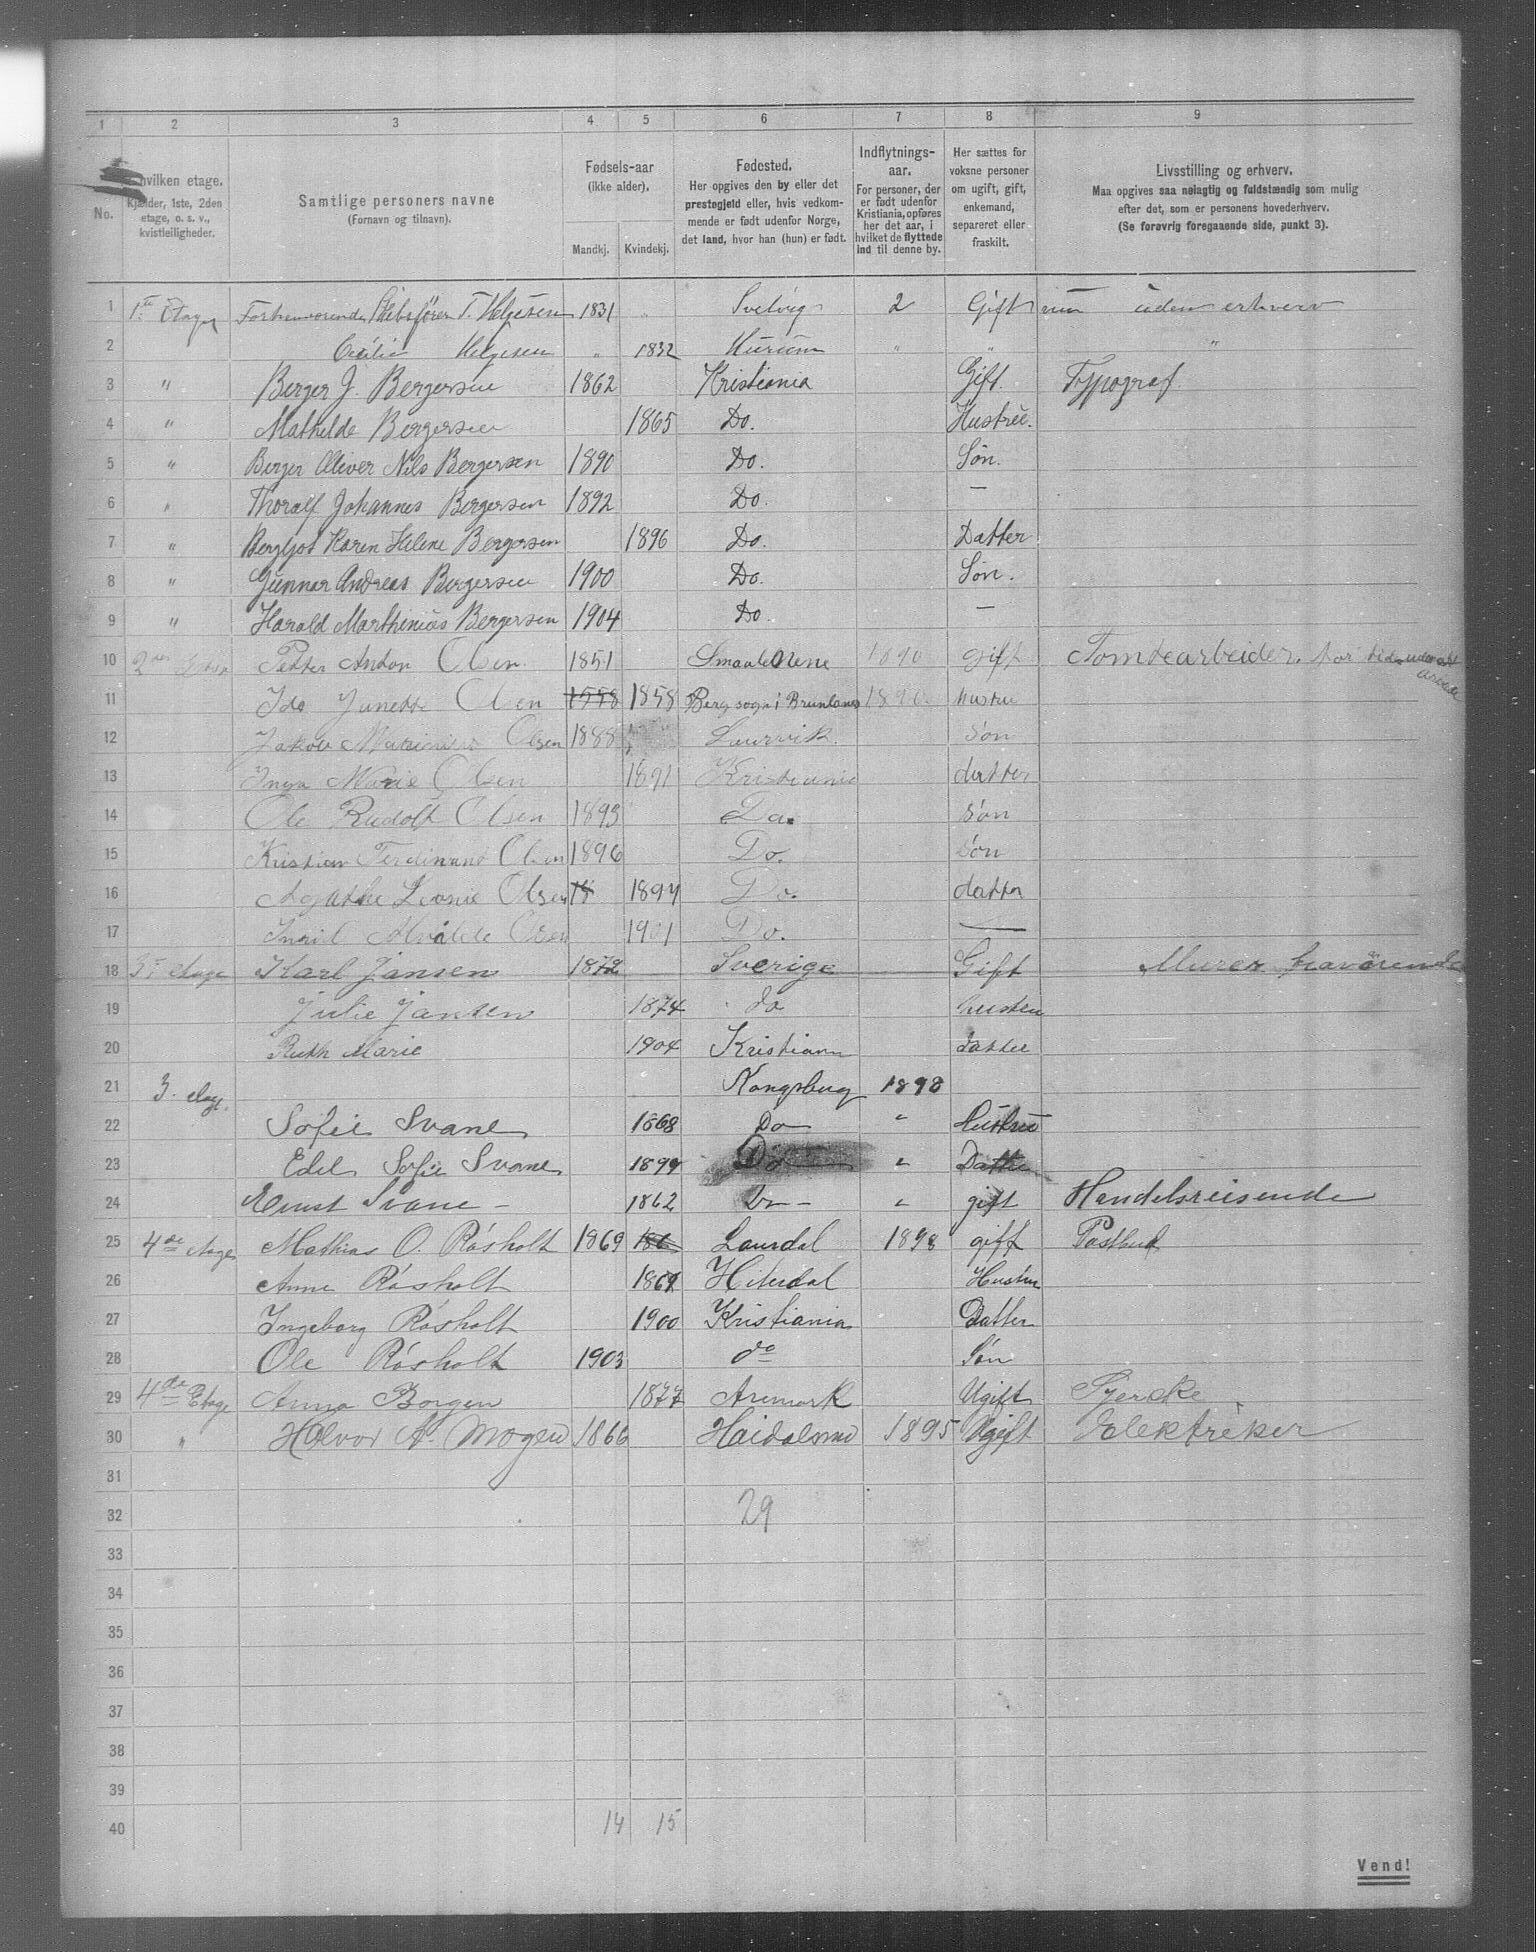 1 2 3 4 5 6 7 8 9
No.
hvilken etage.
Kjælder, 1ste, 2den
etage, o. s. v.,
kvistleiligheder.
Samtlige personers navne
(Fornavn og tilnavn).
Fødsels-aar
(ikke alder).
Mandkj. Kvindekj.
Fødested.
Her opgives den by eller det
prestegjeld eller, hvis vedkom-
mende er født udenfor Norge,
det land, hvor han (hun) er født.
Indflytnings-
aar.
For personer, der
er født udenfor
Kristiania, opføres
her det aar, i
hvilket de flyttede
ind til denne by.
Her sættes for
voksne personer
om ugift, gift,
enkemand,
separeret eller
fraskilt.
Livsstilling og erhverv.
Maa opgives saa nøiagtig og fuldstændig som mulig
efter det, som er personens hovederhverv.
(Se forøvrig foregaaende side, punkt 3).
1 1ste Etage Forhenværende Skibsfører T. Helgesen 1831 " Svelvig 2 Gift uden erhverv
2 Cecilie Helgesen " 1832 Hurum " " "
3 " Berger J. Bergersen 1862 Kristiania Gift. Typograf
4 " Mathilde Bergersen 1865 Do. Hustru.
5 " Berger Oliver Nils Bergersen 1890 Do. Søn.
6 " Thoralf Johannes Bergersen 1892 Do. —
7 " Bergljot Karen Helene Bergersen 1896 Do. Datter
8 " Gunnar Andreas Bergersen 1900 Do. Søn.
9 " Harald Marthinius Bergersen 1904 Do. —
10 2den Etage Petter Anton Olsen 1851 Smaalenene 1890 gift Tomtearbeider. for tiden uden arbeide
11 Ida Janette Olsen 1858 1858 Berg sogn i Brunlanes 1890 Hustru
12 Jakob Marinius Olsen 1888 Laurvik Søn
13 Inga Marie Olsen 1891 Kristiania datter
14 Ole Rudolf Olsen 1893 Do. Søn
15 Kristian Ferdinand Olsen 1896 Do. Søn
16 Agathe Leonie Olsen 18 1897 Do. datter
17 Olsen 1901 Do. —
18 3die etage Karl Jansen 1872 Sverige Gift Murer fraværende
19 Julie Jansen 1874 do hustru
20 Ruth Marie 1904 Kristiania datter
21 3. etage. Kongsberg 1898
22 Sofie Svane 1868 Do " Hustru
23 Edel Sofie Svane 1899 Do " Datter
24 Ernst Svane - 1862 Do - " gift Handelsreisende
25 4de etage Mathias O. Råsholt 1869 186 Laurdal 1898 gift Postbud
26 Anne Råsholt 1869 Hiterdal Hustru
27 Ingeborg Råsholt 1900 Kristiania Datter
28 Ole Råsholt 1903 do Søn
29 4de Etage Anna Borgen 1877 Aremark Ugift Syerske
30 " Halvor A. Mogen 1866 Haidalsmo 1895 Ugift Elektriker
31
32 29
33
34
35
36
37
38
39
40 14 15
Vend!